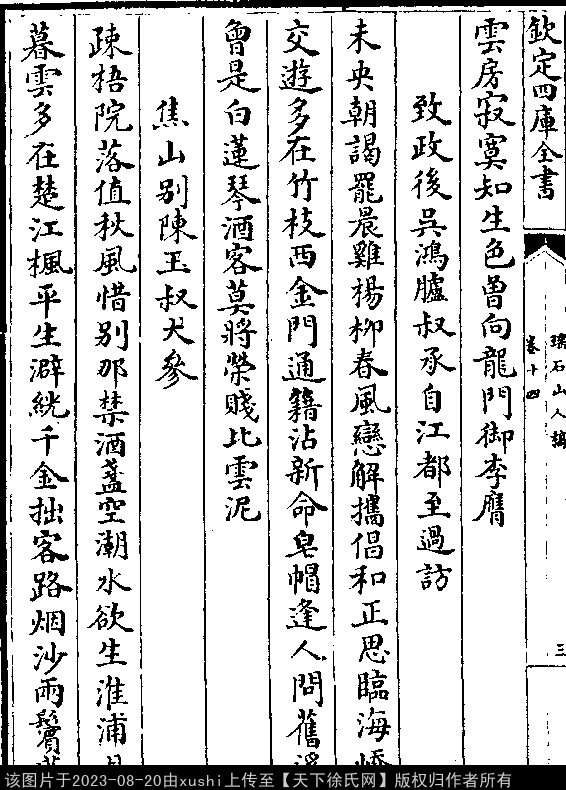 欽定四庫全書
瑤石山人稿
卷十四
三
雲房寂寞知生色曾向龍門御李膺
致政後吳鴻臚叔承自江都至過訪
未央朝謁罷晨雞楊柳春風戀解攜倡和正思臨海嶠
交遊多在竹枝西金門通籍沾新命皂帽逢人問舊溪
曾是白蓮琴酒客莫將榮賤比雲泥
焦山别陳玉叔大參
疎梧院落值秋風惜别那禁酒盞空潮水欲生淮浦月
暮雲多在楚江楓平生澼絖千金拙客路烟沙兩鬢
该图片于2023-08-20由xushi上传至【天下徐氏网】版权归作者所有